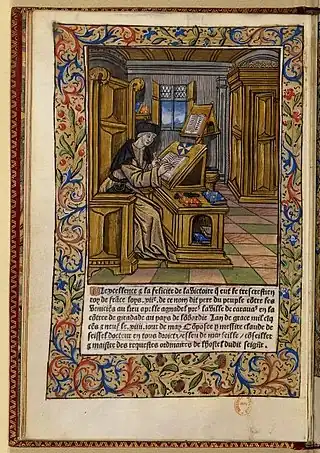 Lexcellence & la felicite de la victoire q̃ eut le treschrestien
roy de frãce loys .xii⁹. de ce nom dit pere du peuple cõtre les
au lieu apelle agnadel pres la ville de carauas en la
cõtree de giradade au pays de lõbardie Lan de grace mil
cẽs & neuf le .xiiii. iour de may Cõpose p̱ messire claude de
seissel docteur en tous droitz esleu de marseille / cõseiller
& maistre des requestes ordinaires de lhostel dudit seigñr.